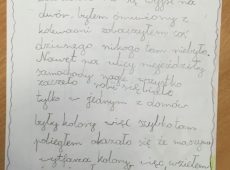 się wyjść na
dwór, byłem umówiony z
kolegami zobaczyłem coś
dziwnego nikogo tam nie było.
Nawet na ulicy nie jeździły
samochody, nagle wszystko
zaczęło robić się białe
tylko w jednym z domów
były kolory więc szybko tam
pobiegłem okazało się że maszyna
wytwarza kolory, więc wziełem